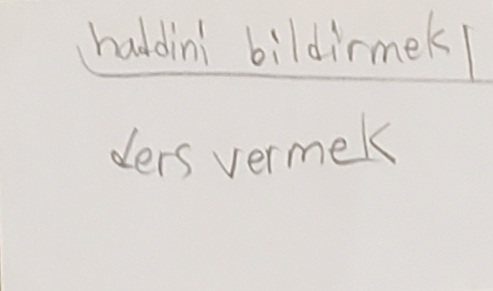 haddini bildirmek
ders vermek